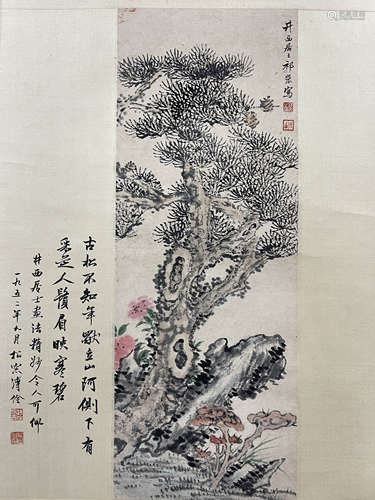 井西居士祁崑寫
古松不知年獨立山阿側下有
采芝人鬢眉映寒碧
井西居士畫法精妙令人可佩
一九五二年九月松窗溥佺